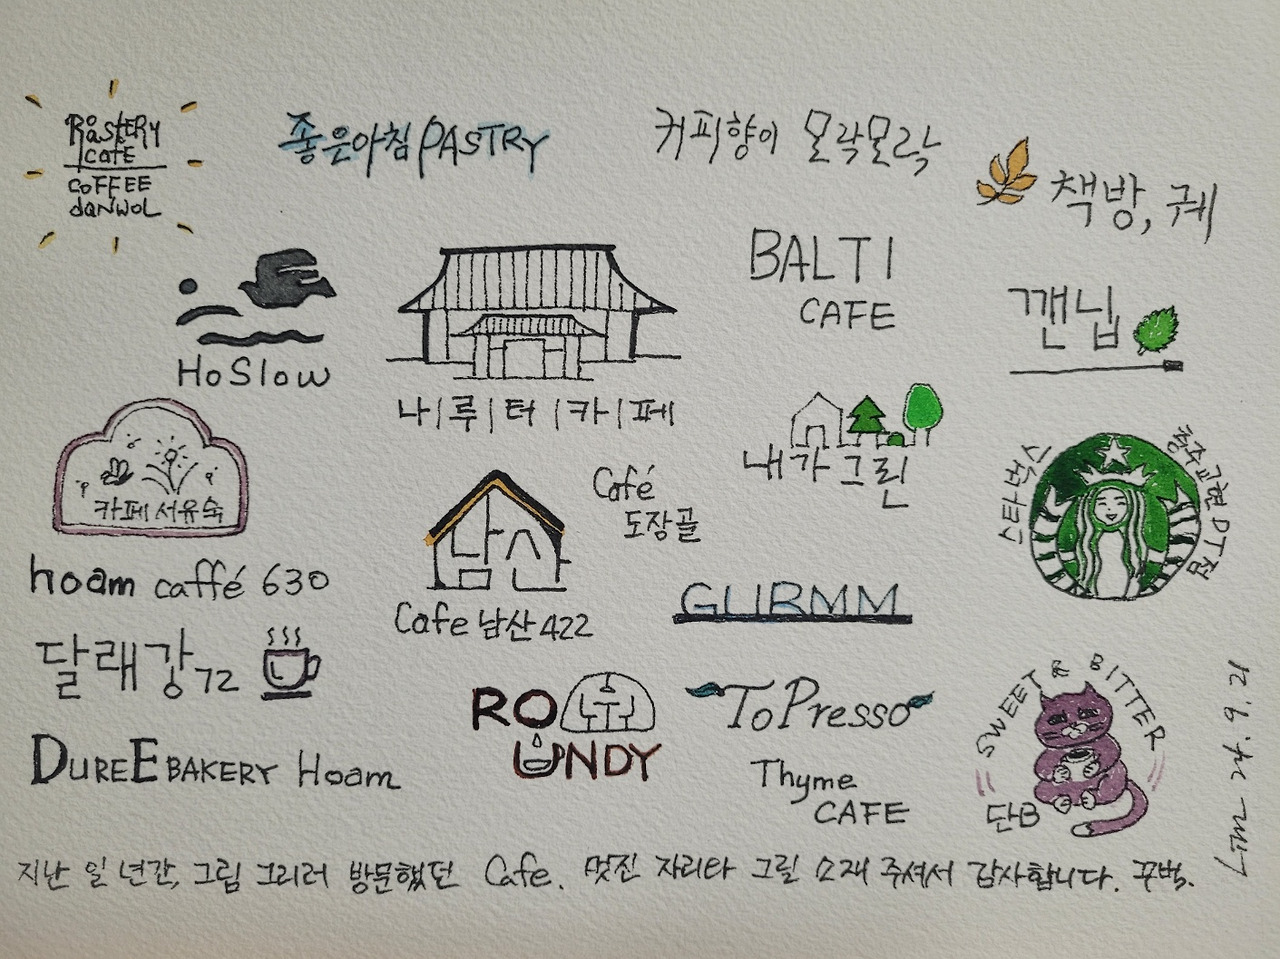 RoastERY
CaFE
CoFFEE
daNWOL
좋은아침 PASTRY
커피향이 모락모락
책방, 궤
HoSlow
나|루|터|카|페
BALTI
CAFE
깬닙
카페 서유숙
내가 그린
스타벅스
충주교현DT점
Café
도장골
hoam caffé 630
Cafe 남산 422
GURMM
달래강72
ROUNDY
ToPresso
SWEET & BITTER
단B
DUREE BAKERY Hoam
Thyme
CAFE
지난 일 년간, 그림 그리러 방문했던 Cafe. 멋진 자리타 그릴 소재 주셔서 감사합니다. 꾸벅.
24. 9. 21